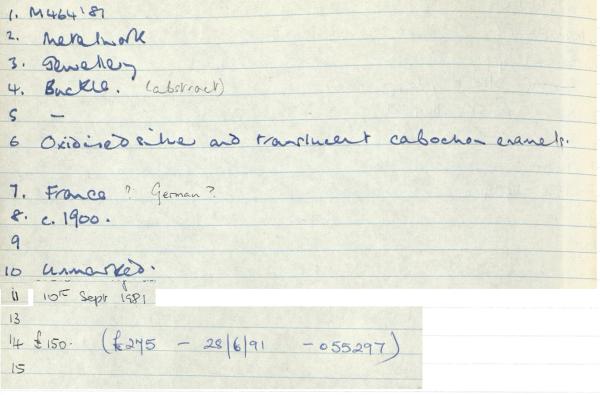 1. M464'81
2. Metalwork
3. Jewellery
4. Buckle. (abstract)
5 -
6 Oxidised silver and translucent cabochon enamels.
7. France ? German ?
8. c. 1900.
9
10 Unmarked.
11 10th Sept 1981
13
14 £150. (£275 - 28/6/91 - 055297)
15